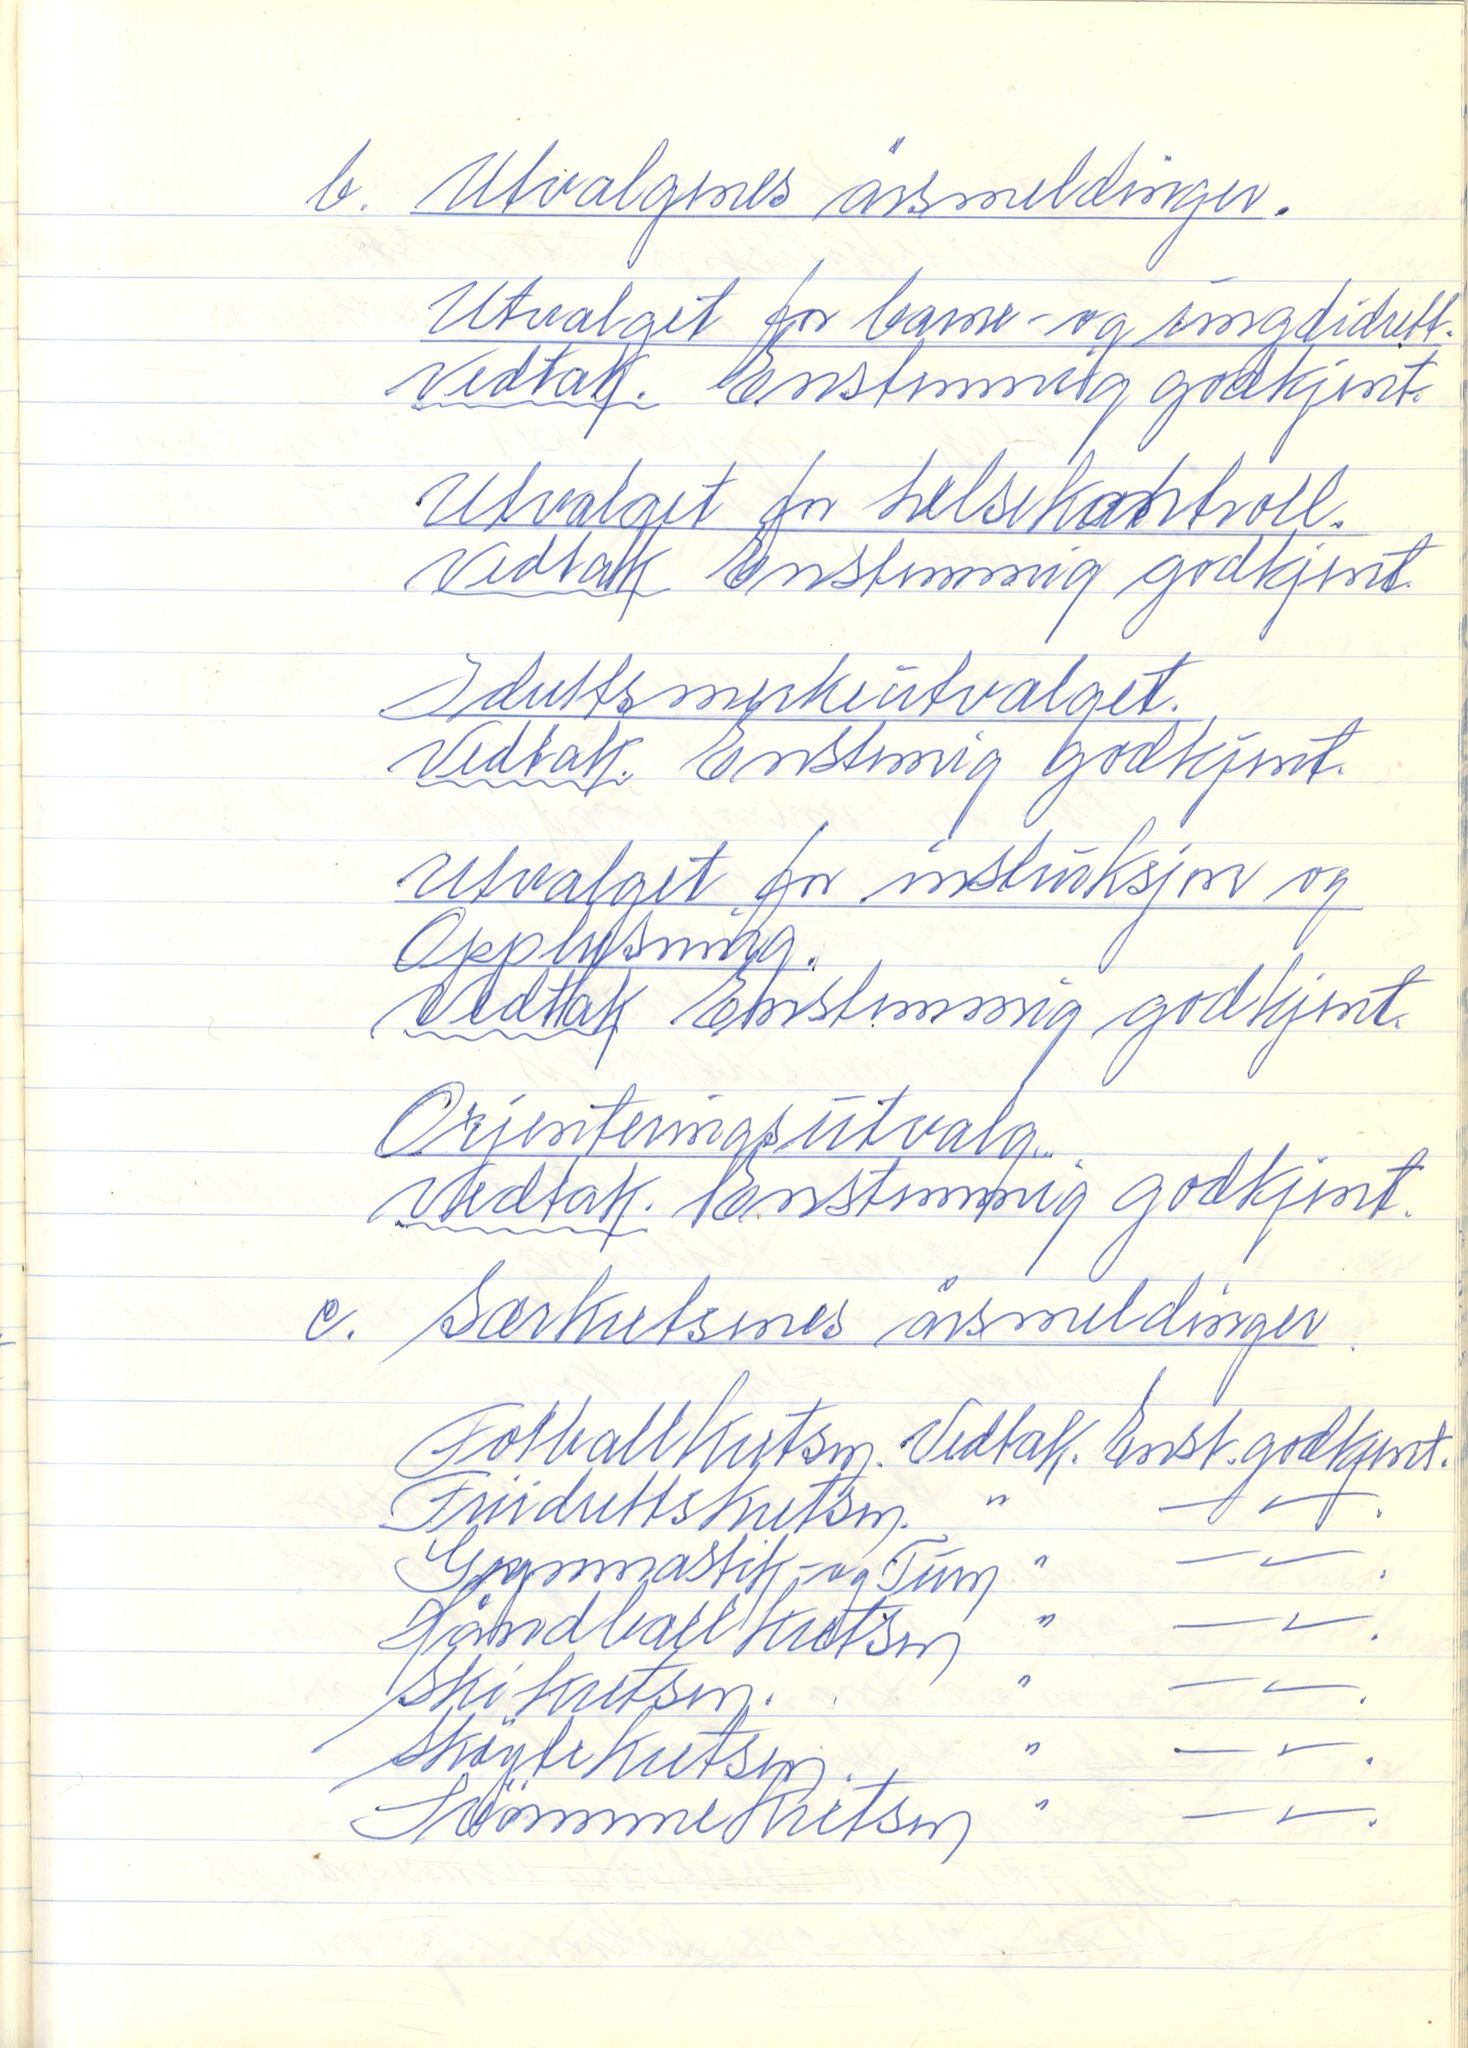 b. Utvalgenes årsmeldinger.
Utvalget for barne- og ungdidrett.
Vedtak. Enstemmig godkjent.
Utvalget for helsekontroll.
Vedtak Enstemmig godkjent.
Idrettsmerkeutvalget.
Vedtak. Enstemig godkjent.
Utvalget for instruksjon og
Opplysning.
Vedtak Enstemmig godkjent.
Orienteringsutvalg.
Vedtak. Enstemmig godkjent.
c. Særkretsenes årsmeldinger
Fotballkretsen. Vedtak. Enst. godkjent.
Friidrettskretsen. " — " —.
Gymnastik- og Turn " — " —.
Håndballkretsen " — " —.
Skikretsen. " — " —.
Skøytekretsen. " — " —.
Svømmekretsen " — " —.